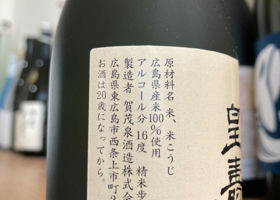 皇壽
原材料名 米、米こうじ
広島県産米100%使用
アルコール分 16度 精米歩
製造者 賀茂泉酒造株式会
広島県東広島市西条上市町2
お酒は20歳になってから。